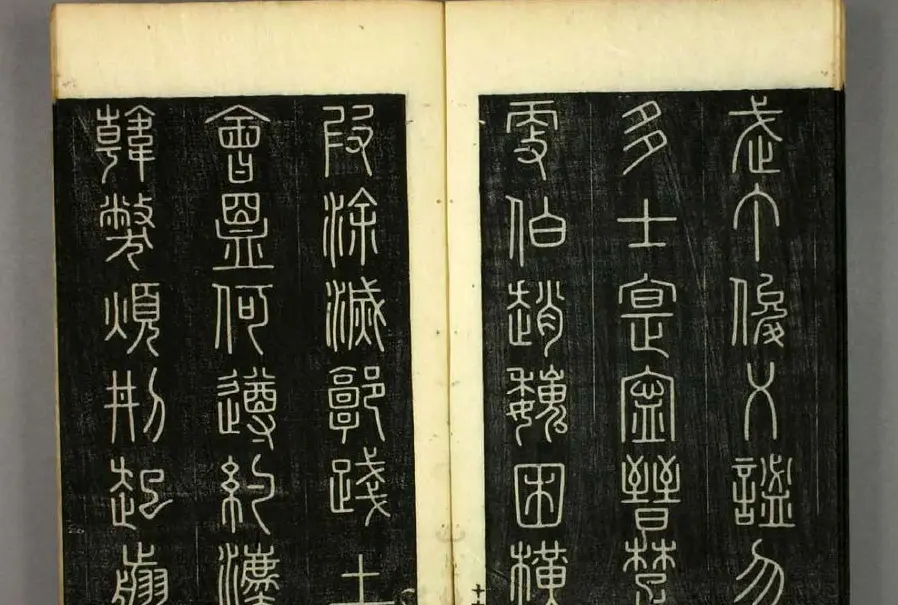 武丁俊乂謐勿
多士寔寧晉楚
更伯趙魏困橫
叚涂滅郭踐土
會盟何遵約灋
韓弊煩刑起